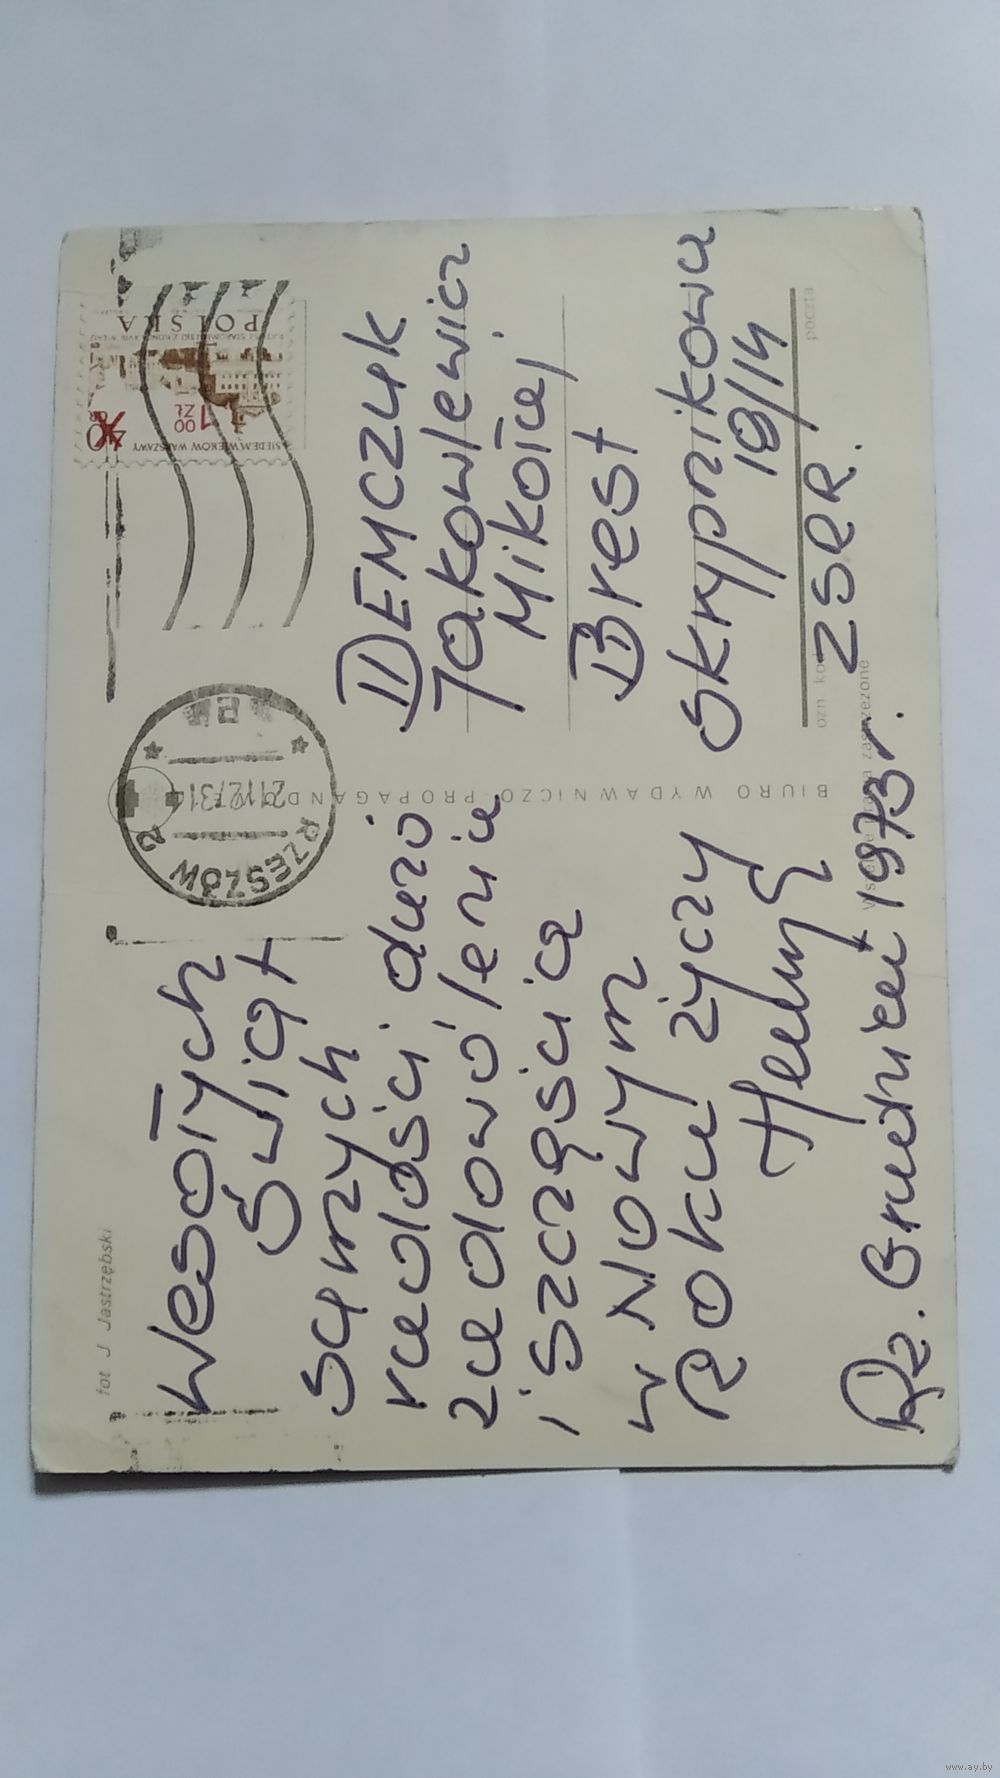 fot J Jastrzębski
Wesołych
Świąt
samych
radości dużo
zadowolenia
i szczęścia
w Nowym
Roku życzy
Rz. Grudzień 1973r.
BIURO WYDAWNICZO PROPAGANDOWE
RZESZÓW 2
21.12.73
POLSKA
40
1 00 ZŁ
SIEDEM WIEKÓW WARSZAWY
DEMCZUK
Jakowlewicz
Mikołaj
Brest
Skrypnikowa
18/14
poczta
ZSRR.
www.ay.by